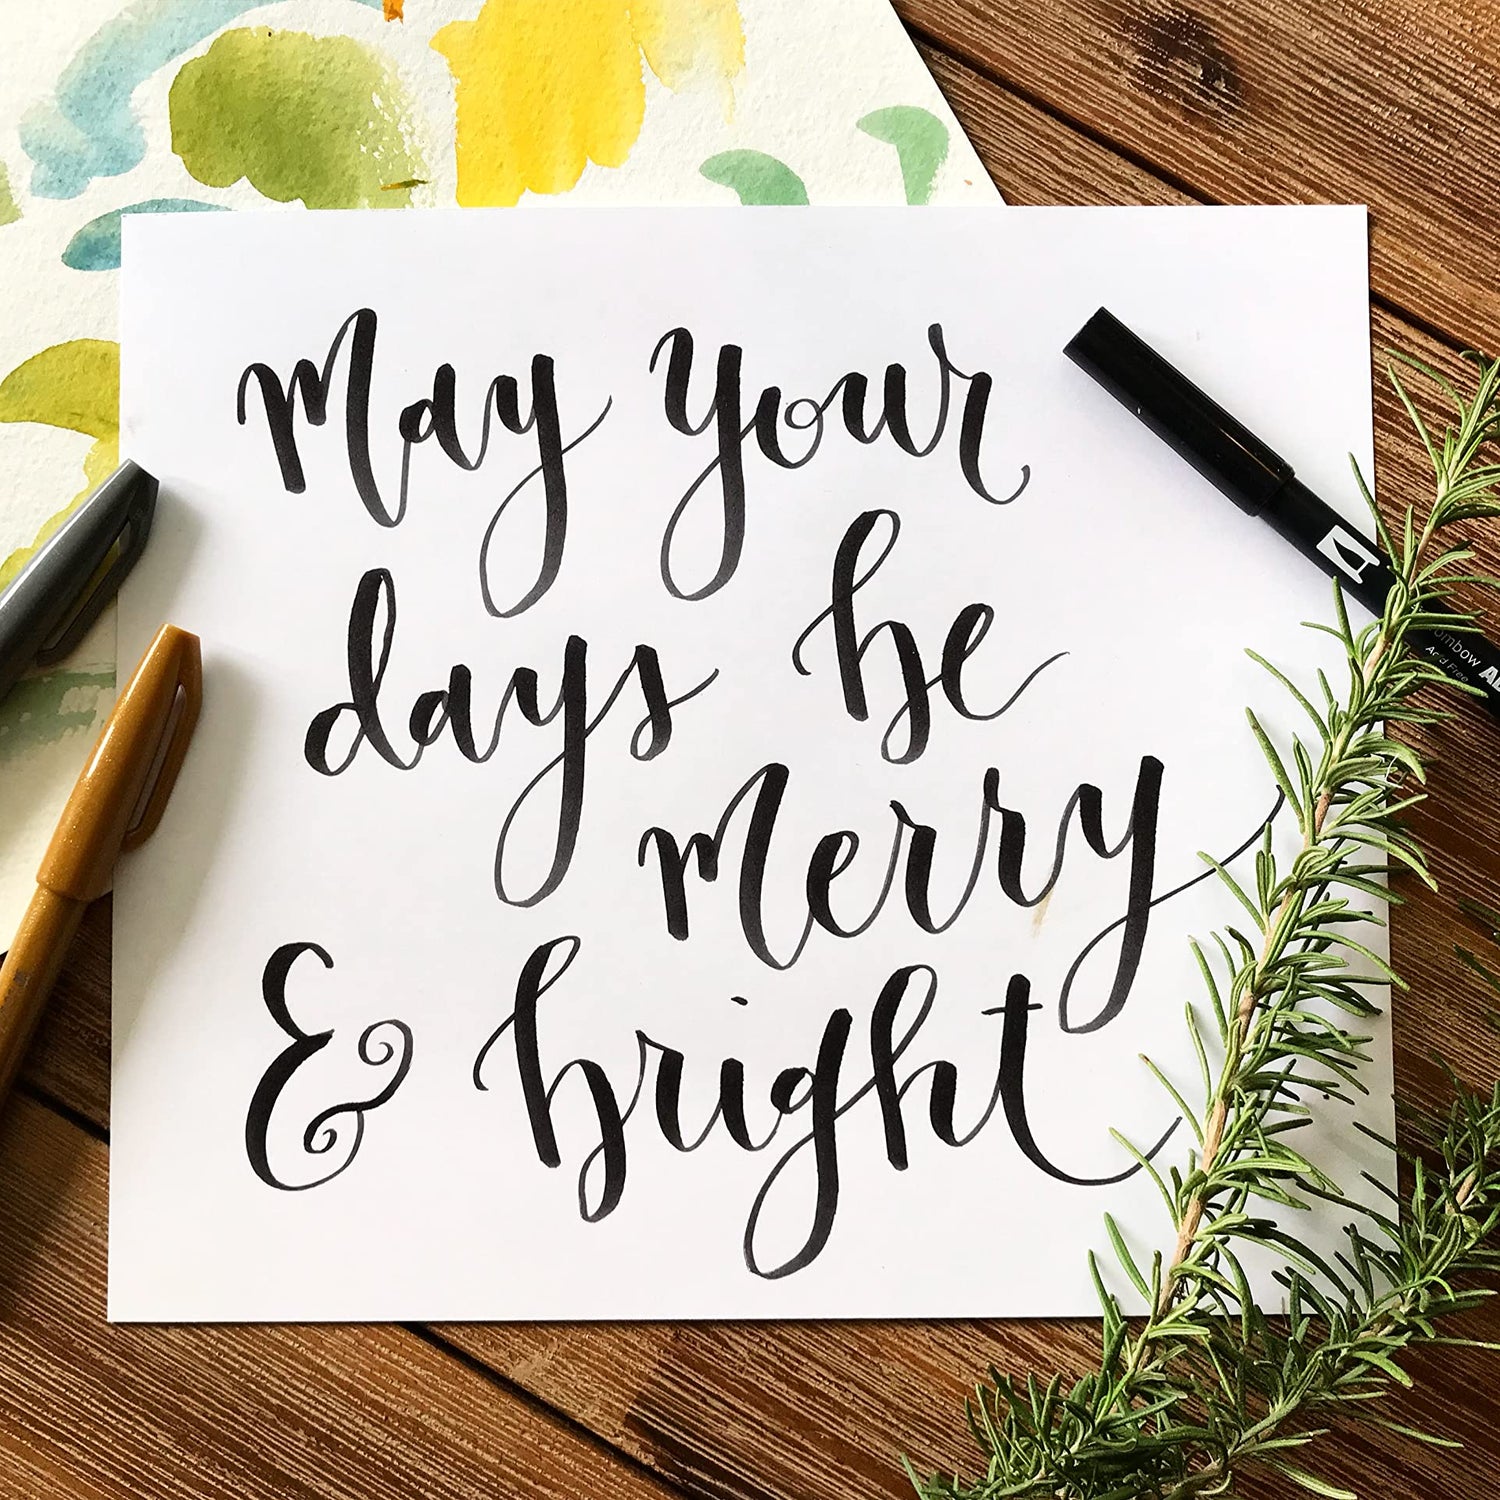 May your
days be
merry
& bright
Tombow
Acid Free